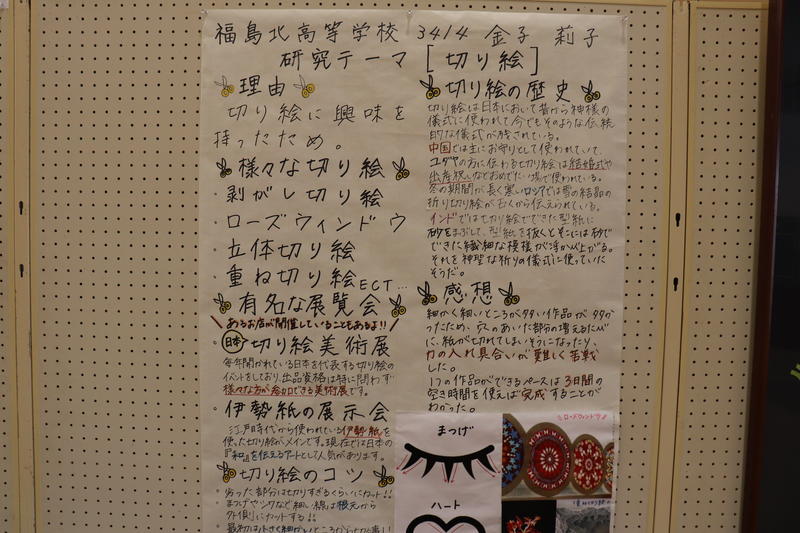 福島北高等学校 3414 金子 莉子
研究テーマ [切り絵]
理由
切り絵に興味を
持ったため。
様々な切り絵
・剥がし切り絵
・ローズウィンドウ
・立体切り絵
・重ね切り絵ECT...
有名な展覧会
あるお店が開催していることもあるよ!!
・日本切り絵美術展
毎年開かれている日本を代表する切り絵の
イベントをしており、出品資格は特に問わず
様々な方が参加できる美術展です。
・伊勢紙の展示会
江戸時代から使われている伊勢紙を
使った切り絵がメインです。現在では日本の
『和』を伝えるアートとして人気があります。
切り絵のコツ
・余った部分は切りすぎるくらいにカット!!
まつげやシワなど細い線は根元から
外側にカットする!!
切り絵の歴史
切り絵は日本において昔から神様の
儀式に使われて今でもそのような伝統
的な儀式が残されている。
中国では主にお守りとして使われていて、
ユダヤの方に伝わる切り絵は結婚式や
出産祝いなどおめでたい場で使われている。
冬の期間が長く寒いロシアでは雪の結晶の
折り切り絵が古くから伝えられている。
インドでは切り絵でできた型紙に
砂をまぶして、型紙を抜くとそこには砂で
できた繊細な模様が浮かび上がる。
それを神聖な祈りの儀式に使っていた
そうだ。
感想
細かく細いところが多い作品が多か
ったため、穴のあいた部分の増えるたび
に、紙が切れてしまいそうになったり、
力の入れ具合いが難しく苦戦
した。
1つの作品ができるペースは3日間の
空き時間を使えば完成することが
わかった。
まつげ
ハート
ローズウィンドウ